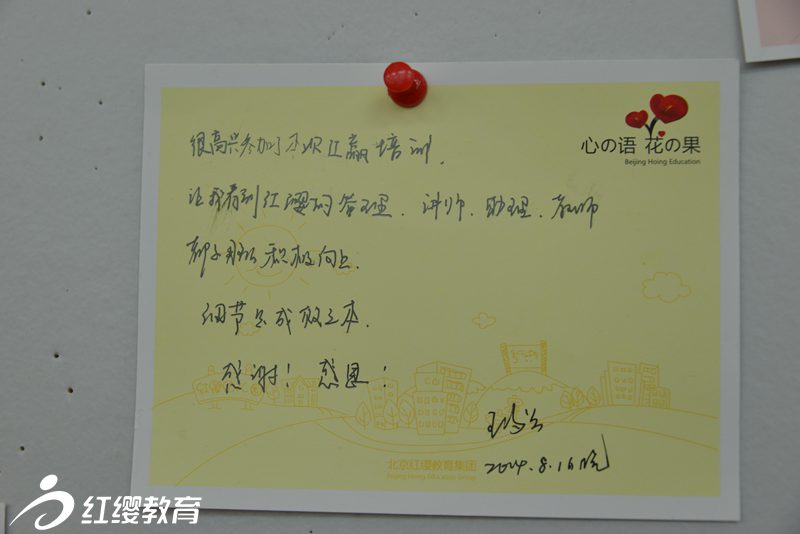 心の语 花の果
Beijing Hoing Education
很高兴参加了本次红赢培训,
让我看到红缨的管理、讲师、助理、教师
都是那么积极向上.
细节是成败之本.
感谢! 感恩!
2014.8.16晚
北京红缨教育集团
Beijing Hoing Education Group
红缨教育